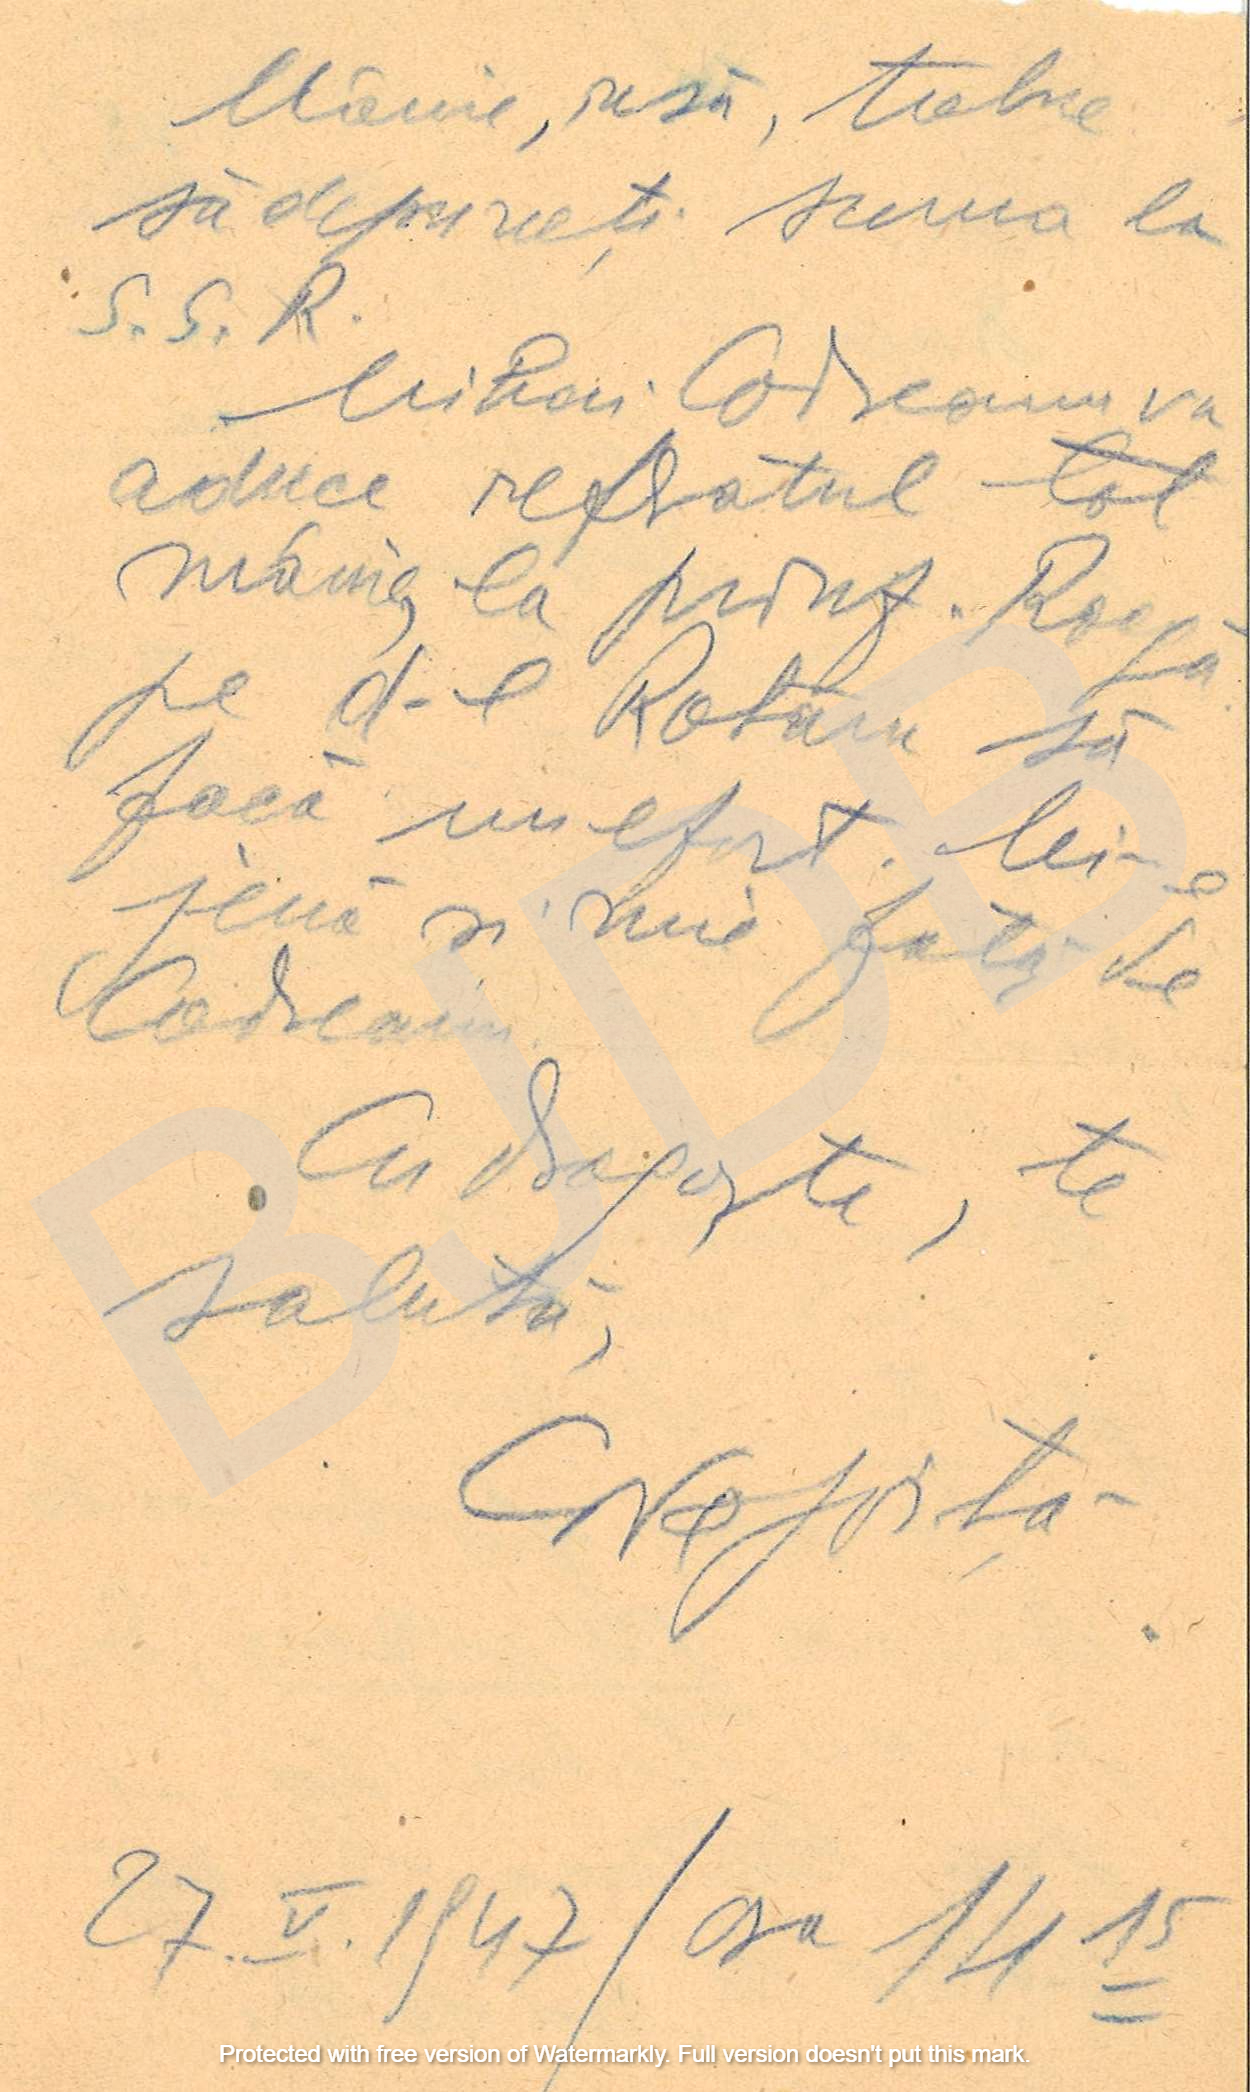 Mâine, însă, trebue
să depuneți suma la
S. S. R.
Mihai Codreanu va
aduce referatul tot
mâine, la prînz. Roagă
pe d-l Rotaru să
facă un efort. Mi-e
jenă și mie față de
Codreanu.
Cu dragoste, te
salută,
27. V. 1947 / ora 14 15
BJDB
Protected with free version of Watermarkly. Full version doesn't put this mark.